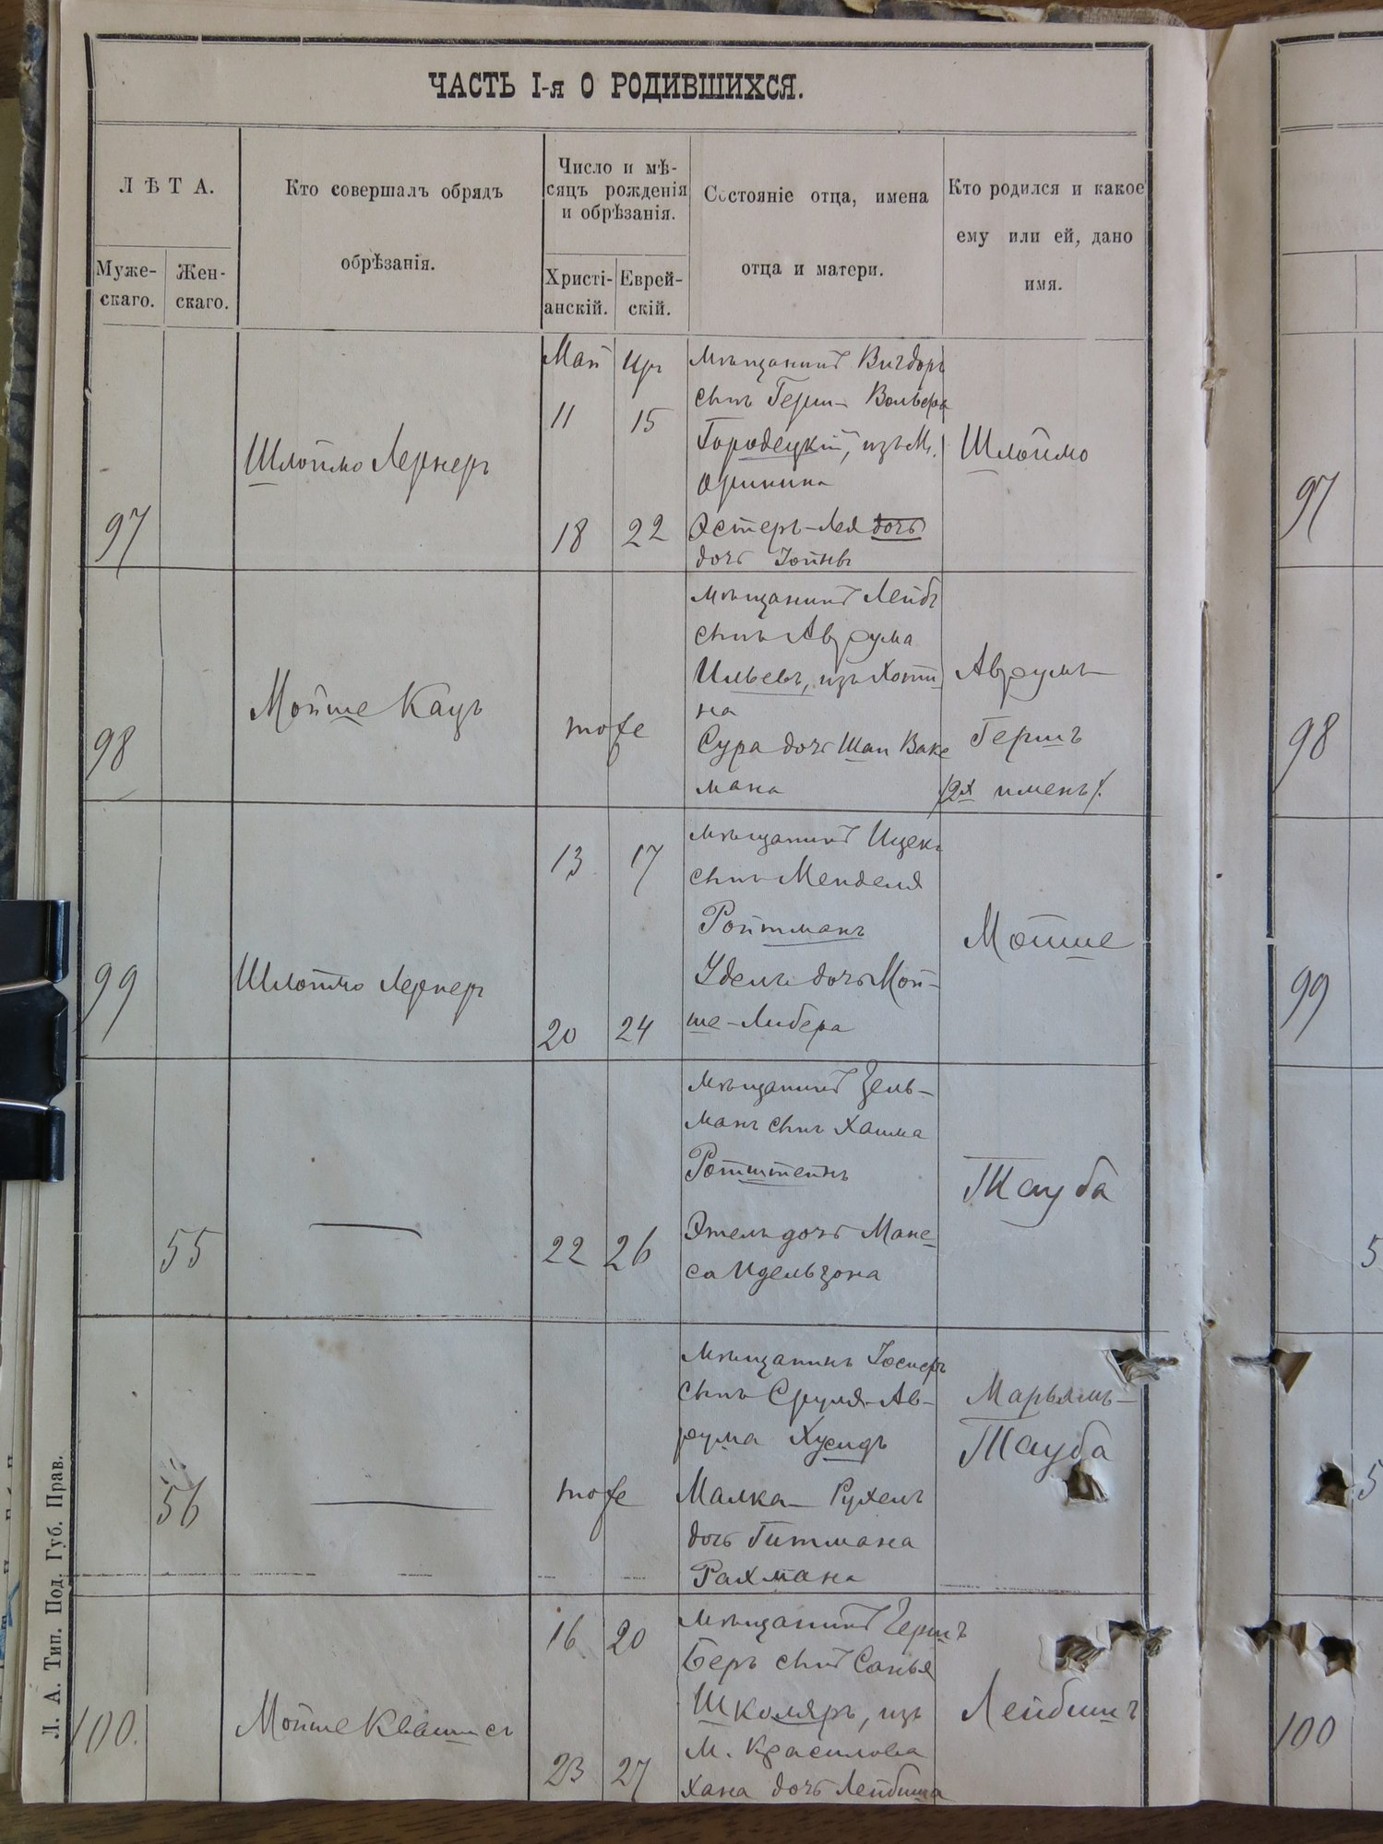 ЧАСТЬ I-я О РОДИВШИХСЯ.
ЛѢТА.
Муже-
скаго.
Жен-
скаго.
Кто совершалъ обрядъ
обрѣзанія.
Число и мѣ-
сяцъ рожденія
и обрѣзанія.
Христі-
анскій.
Еврей-
скій.
Состояніе отца, имена
отца и матери.
Кто родился и какое
ему или ей, дано
имя.
97
Шлоймо Лернеръ
Май
11
18
Иръ
15
22
Мѣщанинъ Вигдоръ
сынъ Герш- Вольфа
Городецкій, изъ М.
Оринина
Эстеръ-Лея дочь
дочь Іойны
Шлоймо
97
98
Мойше Кацъ
тоже
Мѣщанинъ Лейбъ
сынъ Аврума
Ильевъ, изъ Хоти
на
Сура дочь Шаи Вакс
мана
Аврумъ-
Гершъ
/2х именъ/.
98
99
Шлоймо Лернеръ
13
20
17
24
Мѣщанинъ Ицекъ
сынъ Менделя
Ройтманъ
Удель дочь Мой-
ше-Либера
Мойше
99
55
22
26
Мѣщанинъ Зель-
манъ сынъ Хаима
Ротштейнъ
Этель дочь Мане-
са Идельзона
Тауба
5
56
тоже
Мѣщанинъ Іосифъ
сынъ Сруля-Ав-
рума Хусидъ
Малка- Рухель
дочь Гитмана
Рахмана
Марьямъ-
Тауба
5
100.
Мойше Квашисъ
16
23
20
27
Мѣщанинъ Гершъ
Беръ сынъ Санья
Школяръ, изъ
М. Красилова
Хана дочь Лейбиша
Лейбишъ
100
Л. А. Тип. Под. Губ. Прав.